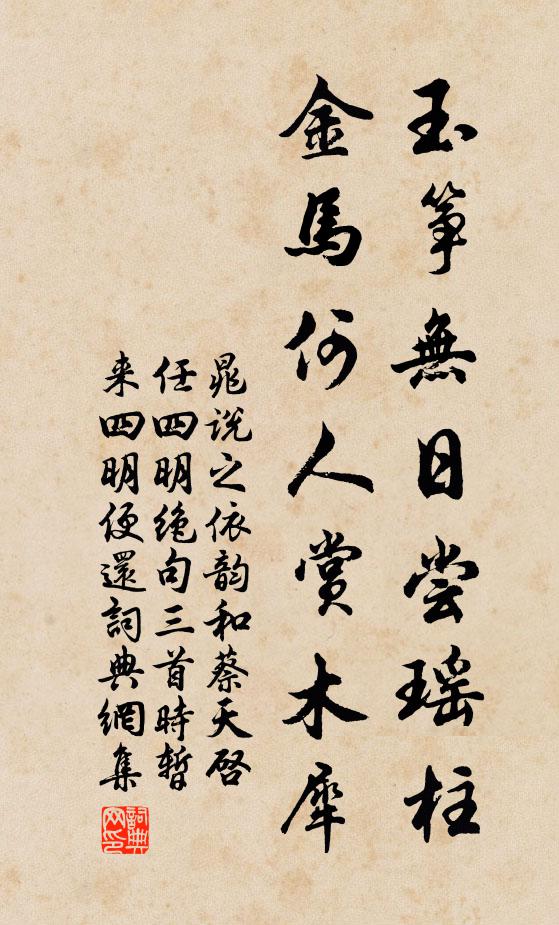 玉箏無日尝瑶柱
金馬何人赏木犀
晁说之依韵和蔡天启
任四明绝句三首時暂
来四明便還詞典網集
詞典网印